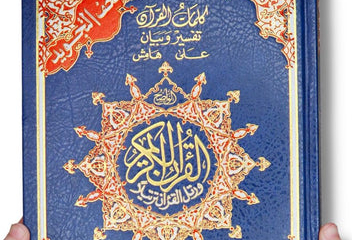 كلمات القرآن
تفسير وبيان
على هامش
القرآن الكريم
ورتل القرآن ترتيلا